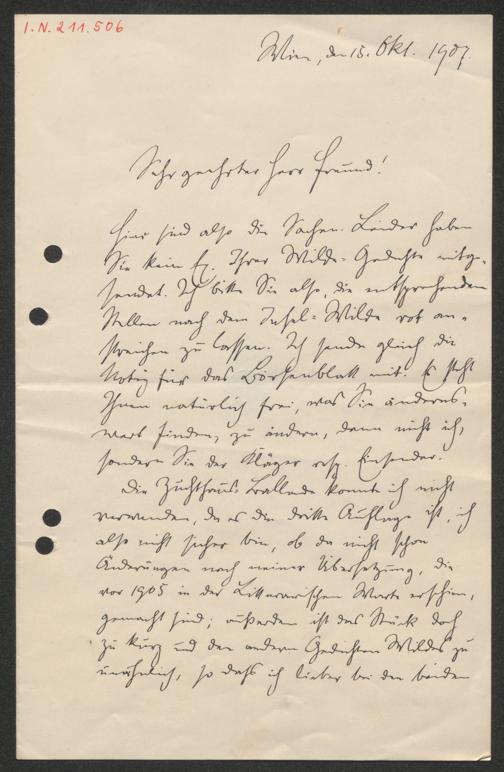 I.N. 211.506
Wien, den 15. Okt. 1907.
Sehr geehrter Herr Freund!
Hier sind also die Sachen. Leider haben
Sie kein Ex. Ihrer Wilde-Gedichte mitge-
sendet. Ich bitte Sie also, die entsprechenden
Stellen nach dem Insel-Wilde rot an-
streichen zu lassen. Ich sende gleich die
Notiz für das Börsenblatt mit. Es steht
Ihnen natürlich frei, was Sie änderns-
wert finden, zu ändern, denn nicht ich,
sondern Sie der Kläger resp. Einsender.
Die Zuchthaus-Ballade konnte ich nicht
verwenden, da es die dritte Auflage ist, ich
also nicht sicher bin, ob da nicht schon
Änderungen nach meiner Übersetzung, die
vor 1905 in der Litterarischen Warte erschien,
gemacht sind; außerdem ist das Stück doch
zu kurz und den andern Gedichten Wildes zu
unähnlich, so daß ich lieber bei den beiden